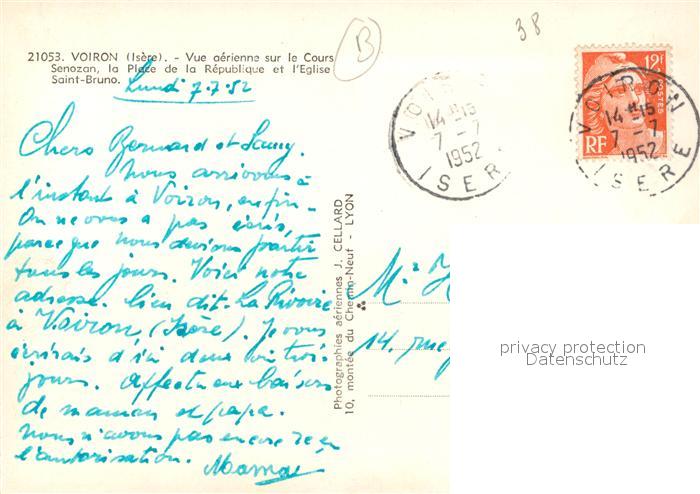 38
B
21053. VOIRON (Isère). - Vue aérienne sur le Cours
Senozan, la Place de la République et l'Eglise
Saint-Bruno.
Lundi 7.7.52
Chers Bernard et
Nous arrivons à
l'instant à Voiron, enfin.
On ne vous a pas écris,
parce que nous devions partir
tous les jours. Voici notre
adresse. lieu dit. La Rivoire
à Voiron (Isère). Je vous
écrirais d'ici deux ou trois
jours. Affectueux baisers
de maman et papa.
Nous n'avons pas encore reçu
l'autorisation. Maman
Photographies aériennes J. CELLARD
10, montée du Chemin-Neuf - LYON
VOIRON
14 H 15
7 - 7
1952
ISERE
12F
POSTES
RF
VOIRON
14 H 15
7 - 7
1952
ISERE
Mr H
14, rue
privacy protection
Datenschutz